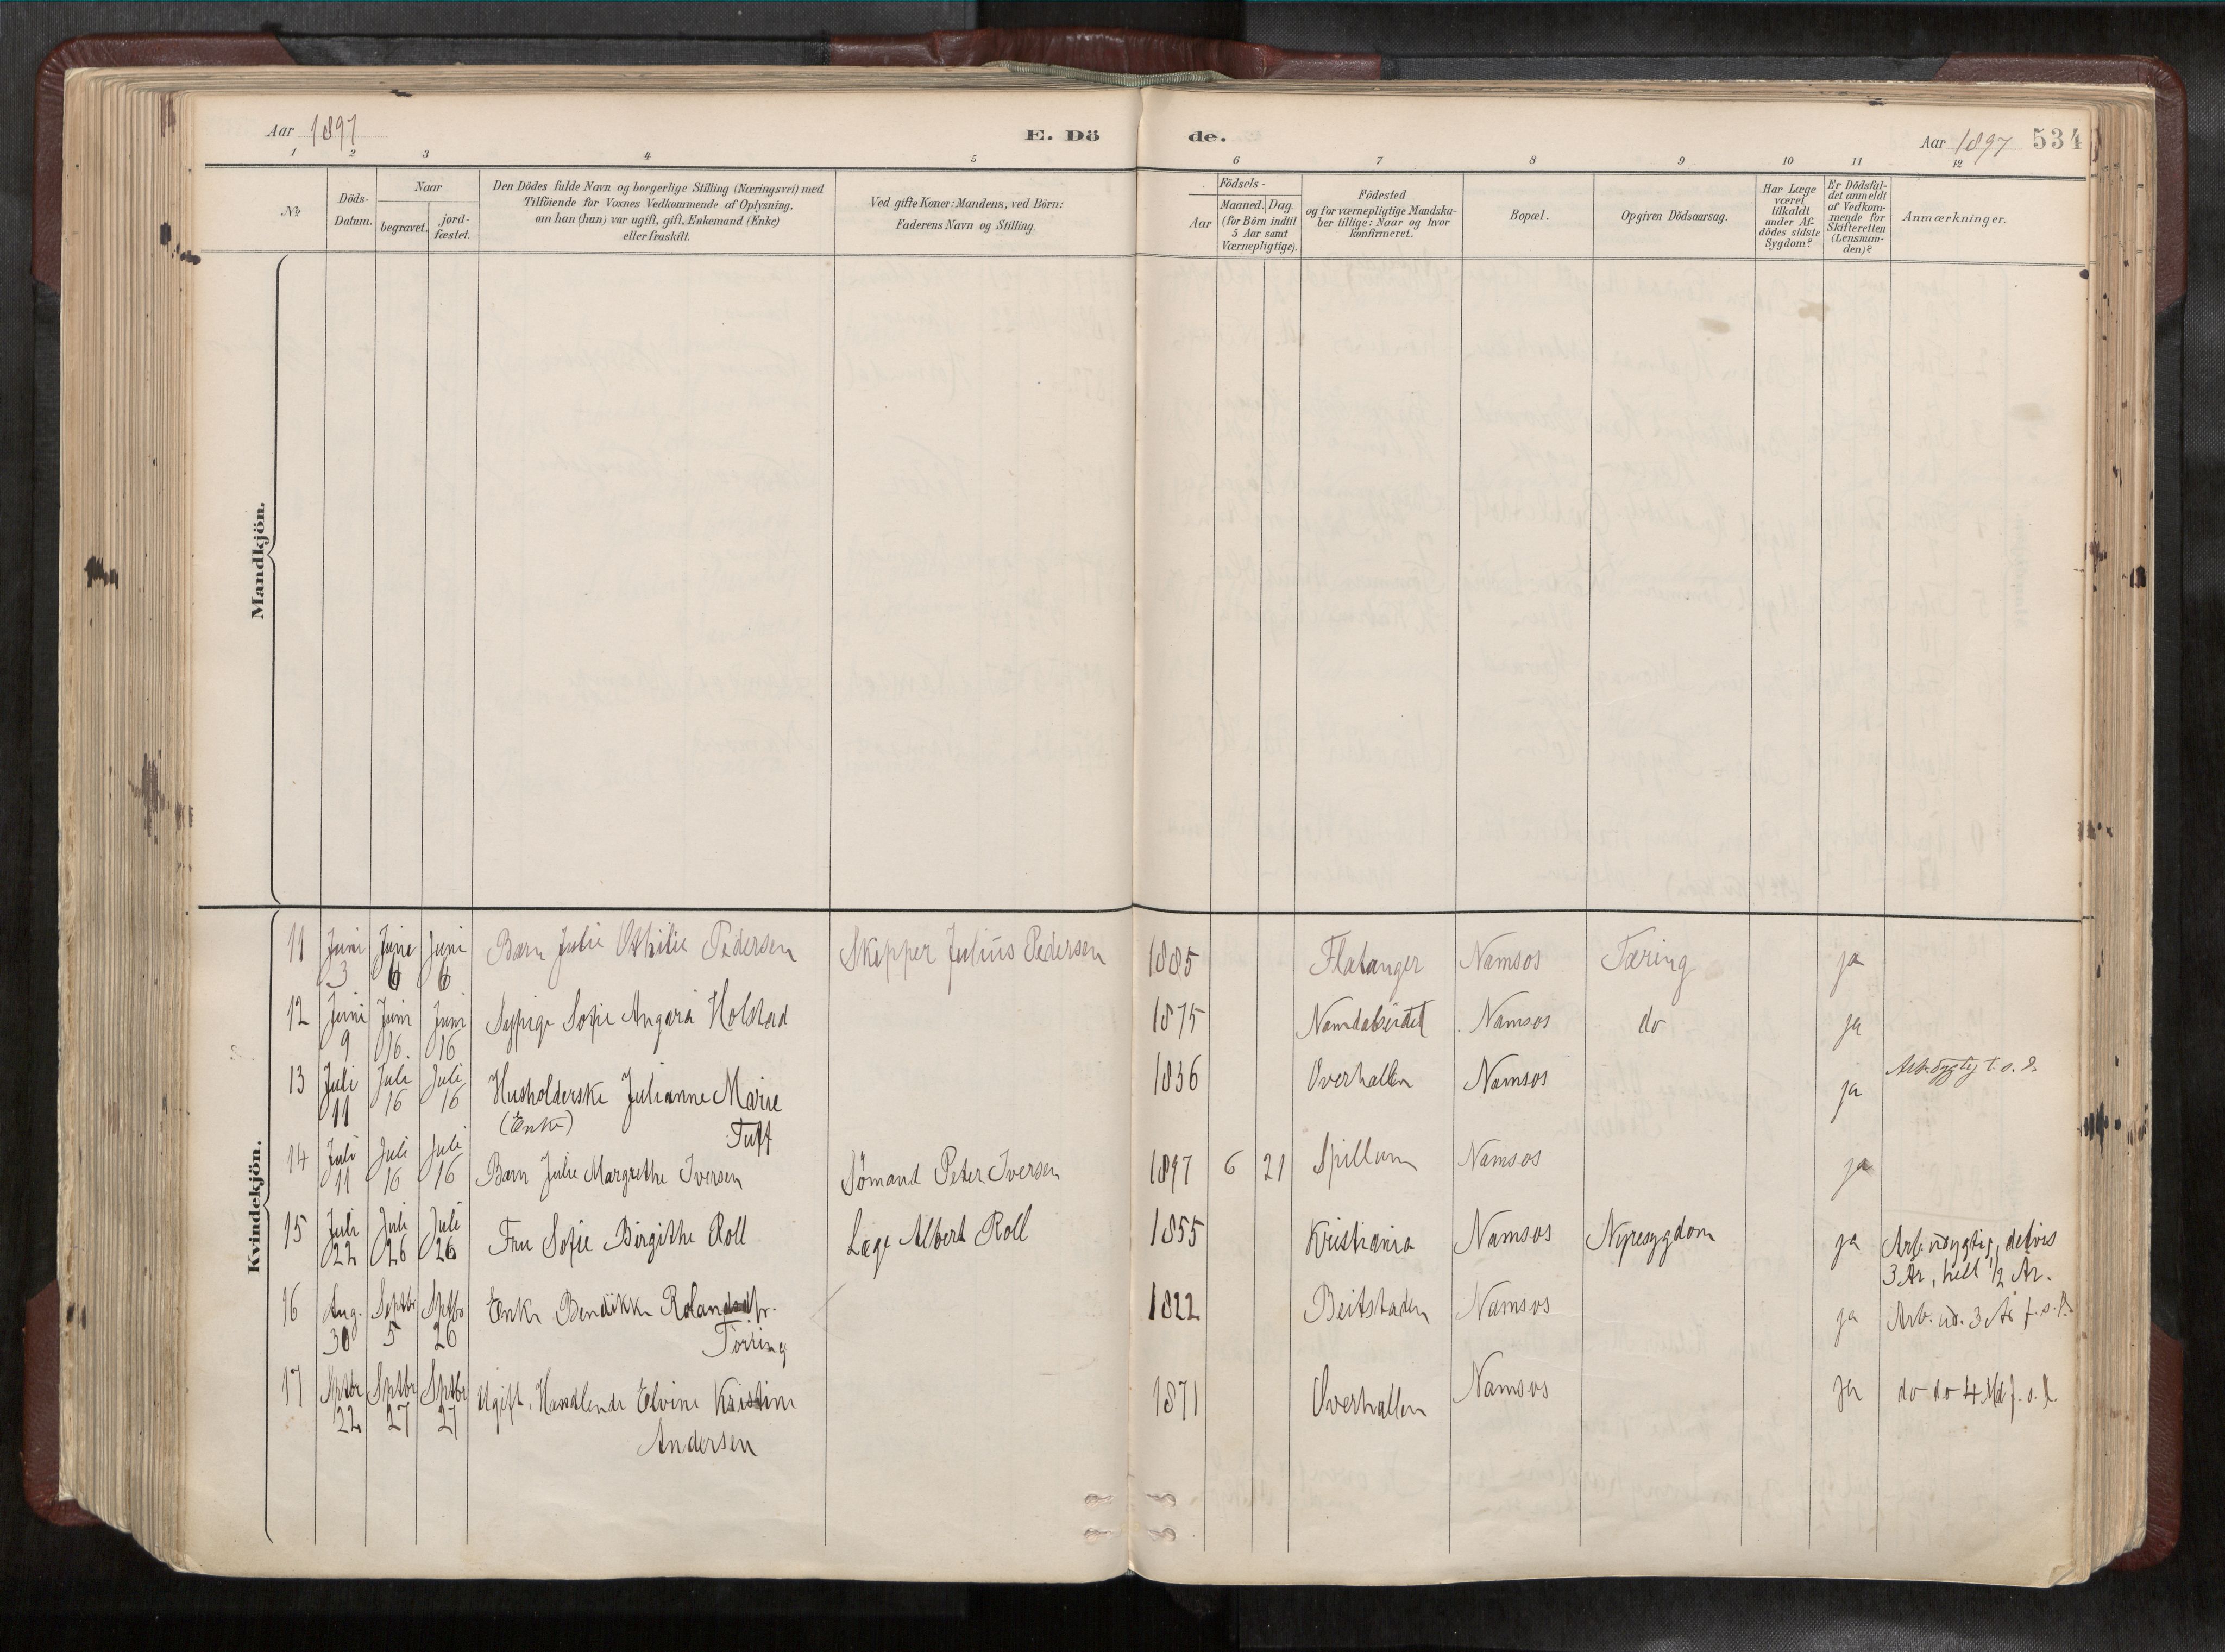 Aar 1897
E. Döde.
Aar 1897 534
1 2 3 4 5 6 7 8 9 10 11 12
No
Döds-Datum.
Naar
begravet.
jord-fæstet.
Den Dödes fulde Navn og borgerlige Stilling (Næringsvei) med
Tilföiende for Voxnes Vedkommende af Oplysning,
om han (hun) var ugift, gift, Enkemand (Enke)
eller fraskilt.
Ved gifte Koner: Mandens, ved Börn:
Faderens Navn og Stilling.
Födsels-
Aar
Maaned. Dag.
(for Börn indtil
5 Aar samt
Værnepligtige).
Födested
og for værnepligtige Mandska-
ber tillige: Naar og hvor
konfirmeret.
Bopæl.
Opgiven Dödsaarsag.
Har Læge
været
tilkaldt
under Af-
dödes sidste
Sygdom?
Er Dödsfal-
det anmeldt
af Vedkom-
mende for
Skifteretten
(Lensman-
den)?
Anmærkninger.
Mandkjön.
Kvindekjön.
11 Juni 3 Juni 6 Juni 6 Barn Julie Othilie Pedersen Skipper Julius Pedersen 1885 Flatanger Namsos Tæring ja
12 Juni 9 Juni 16. Juni 16 Sypige Sofie Angara Holstad 1875 Namdalseidet Namsos do ja
13 Juli 11 Juli 16 Juli 16 Husholderske Julianne Marie
(Enke) Tuft 1836 Overhallen Namsos ja
14 Juli 11 Juli 16 Juli 16 Barn Julie Margrethe Iversen Sömand Peter Iversen 1897 6 21 Spillum Namsos ja
15 Juli 22 Juli 26 Juli 26 Fru Sofie Birgithe Roll Læge Albert Roll 1855 Kristiania Namsos Nyresygdom ja Arb. udygtig, delvis
3 År, helt 1/2 År.
16 Aug. 30 Septbr 5 Sptbr 26 Enke Bendikke Rolandsdtr.
Törring 1822 Beitstaden Namsos ja Arb. ud. 3 År f. s. D.
17 Sptbr 22 Sptbr 27 Sptbr 27 Ugift. Handlende Elvine Kristine
Andersen 1871 Overhallen Namsos ja do do 4 Md f. s. D.